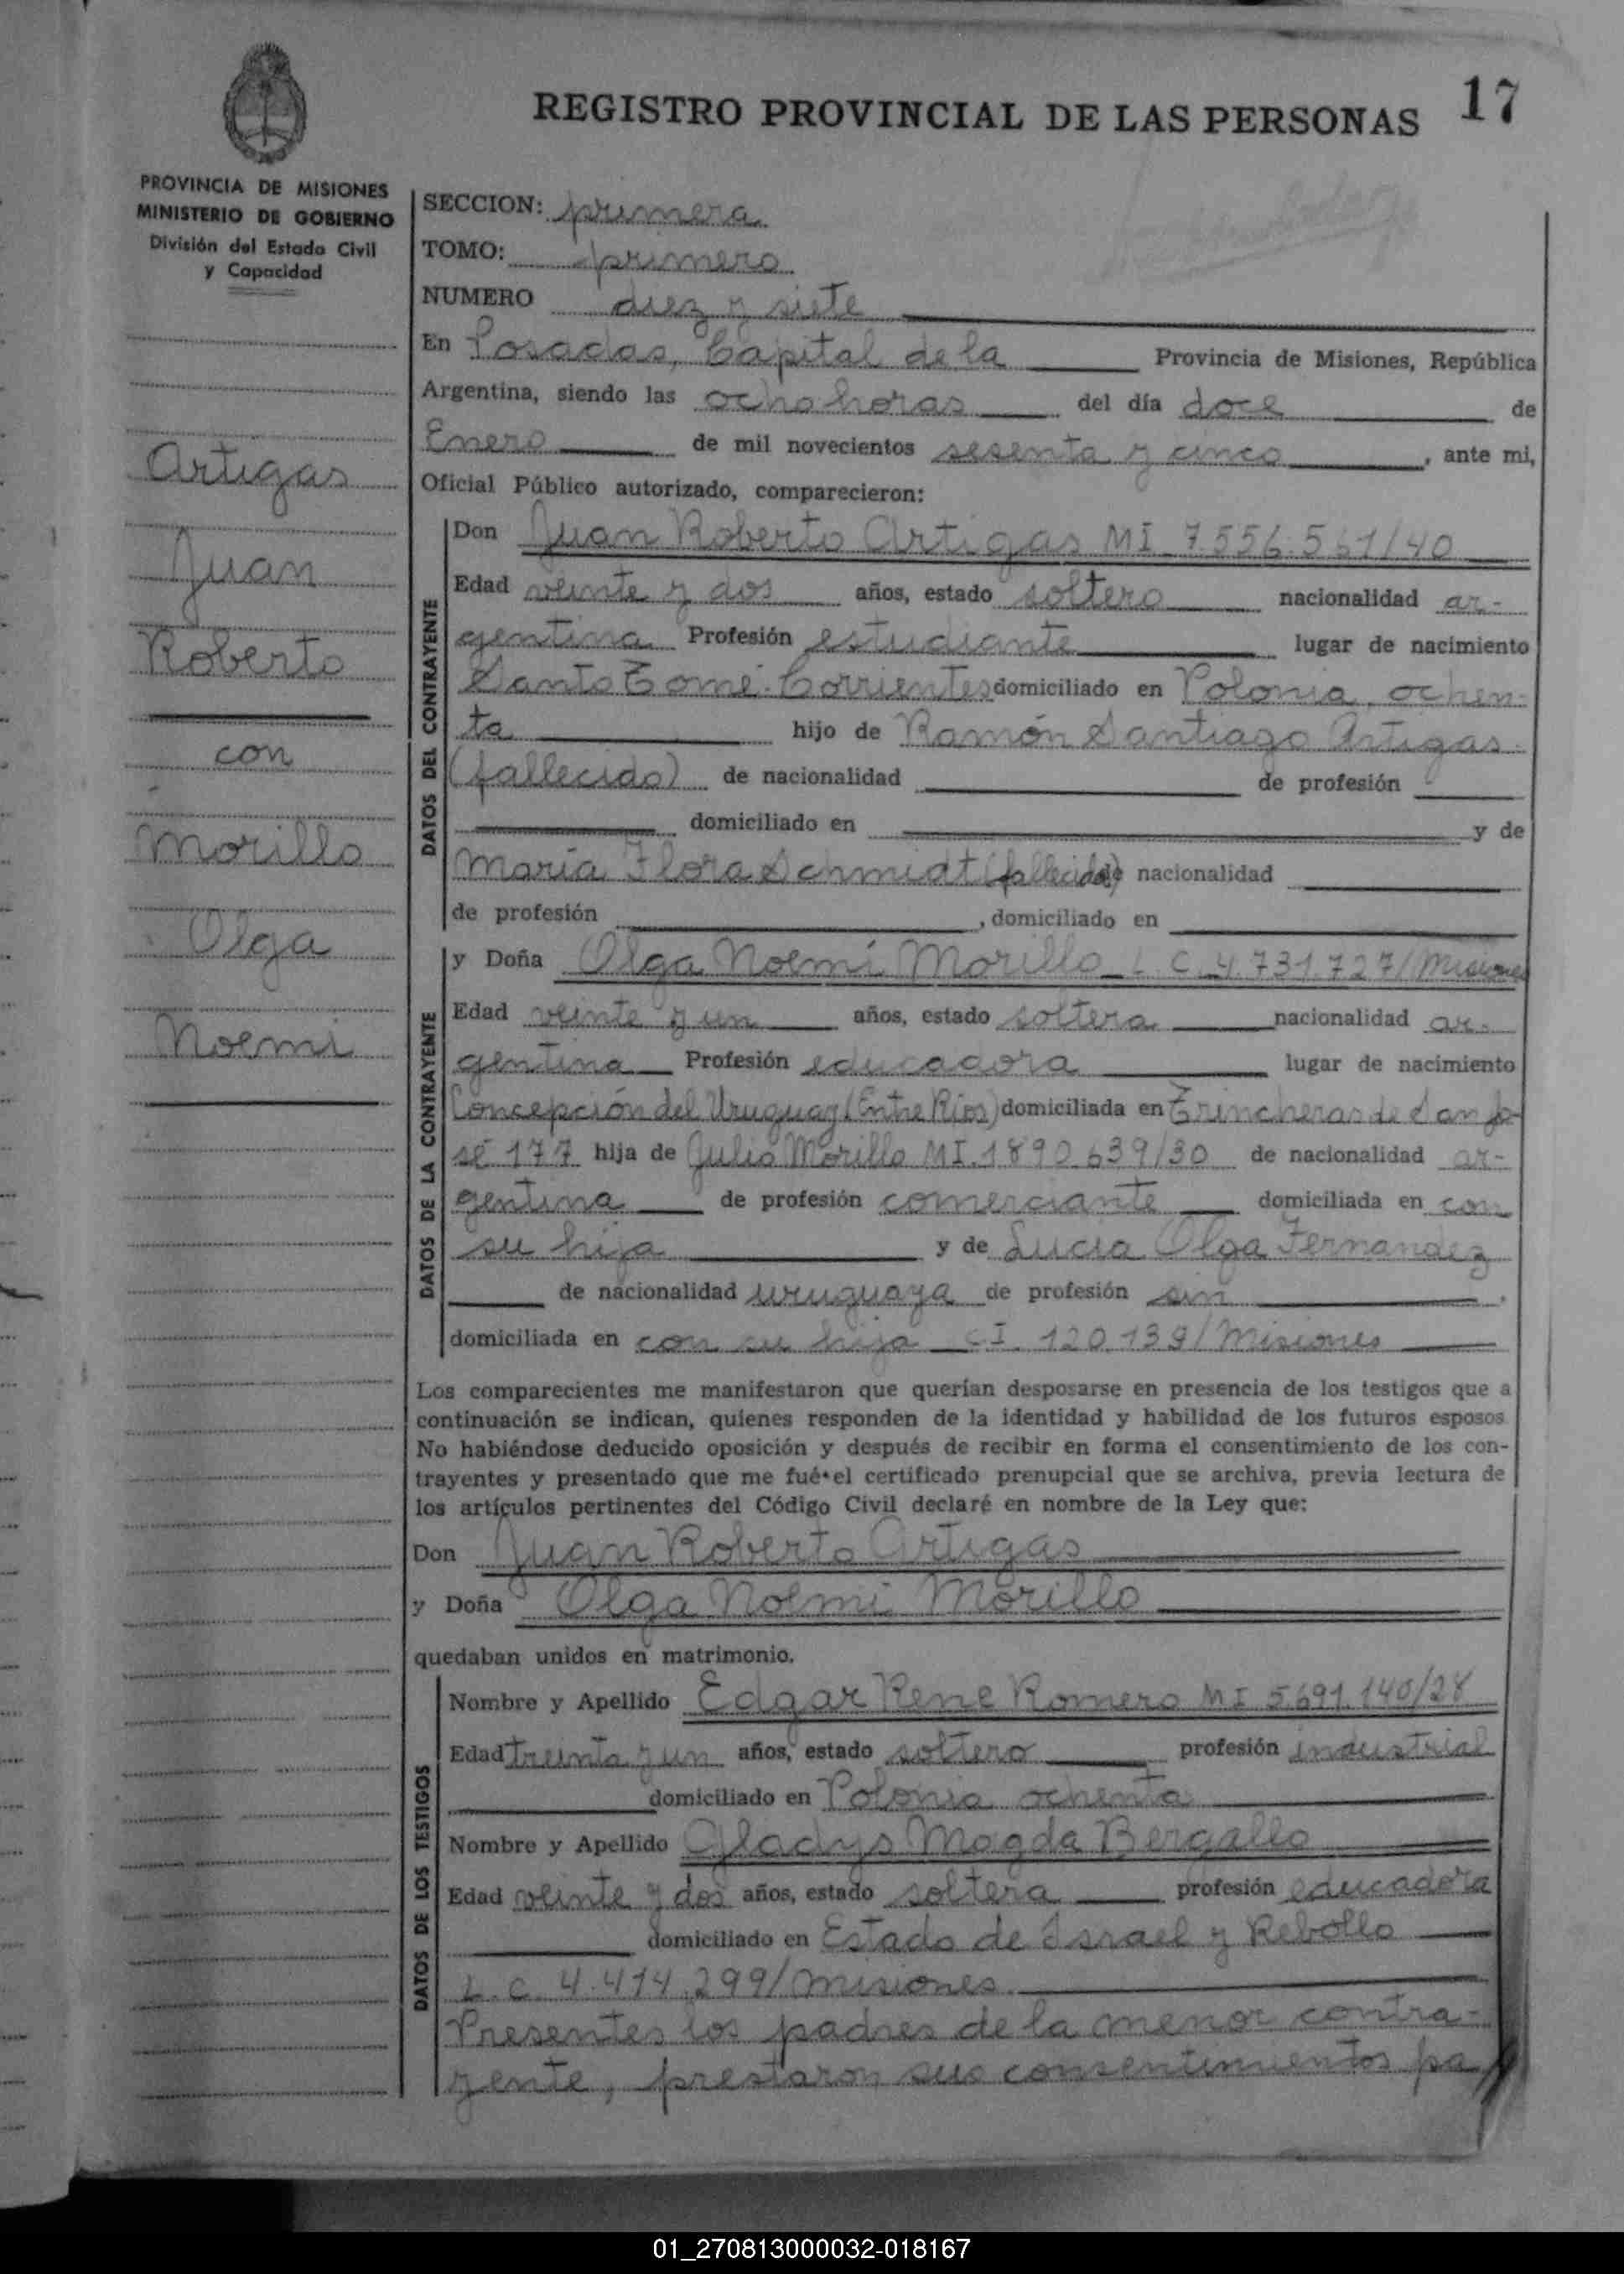 REGISTRO PROVINCIAL DE LAS PERSONAS 17
PROVINCIA DE MISIONES
MINISTERIO DE GOBIERNO
División del Estado Civil
y Capacidad
Artigas
Juan
Roberto
con
Morillo
Olga
Noemi
SECCION: primera
TOMO: primero
NUMERO diez y siete
En Posadas, Capital de la Provincia de Misiones, República
Argentina, siendo las ocho horas del día doce de
Enero de mil novecientos sesenta y cinco, ante mi,
Oficial Público autorizado, comparecieron:
DATOS DEL CONTRAYENTE
Don Juan Roberto Artigas MI 7.556.561/40
Edad veinte y dos años, estado soltero nacionalidad ar-
gentina Profesión estudiante lugar de nacimiento
Santo Tomé. Corrientes domiciliado en Polonia, ochen-
ta hijo de Ramón Santiago Artigas
(fallecido) de nacionalidad de profesión
domiciliado en y de
María Flora Schmidt (fallecida) de nacionalidad
de profesión , domiciliado en
DATOS DE LA CONTRAYENTE
y Doña Olga Noemí Morillo L.C 4.731.727/Misiones
Edad veinte y un años, estado soltera nacionalidad ar-
gentina Profesión educadora lugar de nacimiento
Concepción del Uruguay (Entre Rios) domiciliada en Trincheras de San Jo-
sé 177 hija de Julio Morillo MI.1890.639/30 de nacionalidad ar-
gentina de profesión comerciante domiciliada en con
su hija y de Lucia Olga Fernandez
de nacionalidad uruguaya de profesión sin .
domiciliada en con su hija CI. 120.139/Misiones
Los comparecientes me manifestaron que querían desposarse en presencia de los testigos que a
continuación se indican, quienes responden de la identidad y habilidad de los futuros esposos
No habiéndose deducido oposición y después de recibir en forma el consentimiento de los con-
trayentes y presentado que me fué el certificado prenupcial que se archiva, previa lectura de
los artículos pertinentes del Código Civil declaré en nombre de la Ley que:
Don Juan Roberto Artigas
y Doña Olga Noemi Morillo
quedaban unidos en matrimonio.
DATOS DE LOS TESTIGOS
Nombre y Apellido Edgar Rene Romero MI 5.691.140/28
Edad treinta y un años, estado soltero profesión industrial
domiciliado en Polonia ochenta
Nombre y Apellido Gladys Magda Bergallo
Edad veinte y dos años, estado soltera profesión educadora
domiciliado en Estado de Israel y Rebollo
L.C. 4.414.299/Misiones
Presentes los padres de la menor contra-
yente, prestaron sus consentimientos pa
01_270813000032-018167